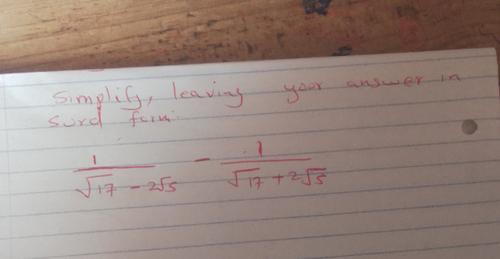 Simplify, leaving your answer in
surd form.
1/(√17 - 2√5) - 1/(√17 + 2√5)